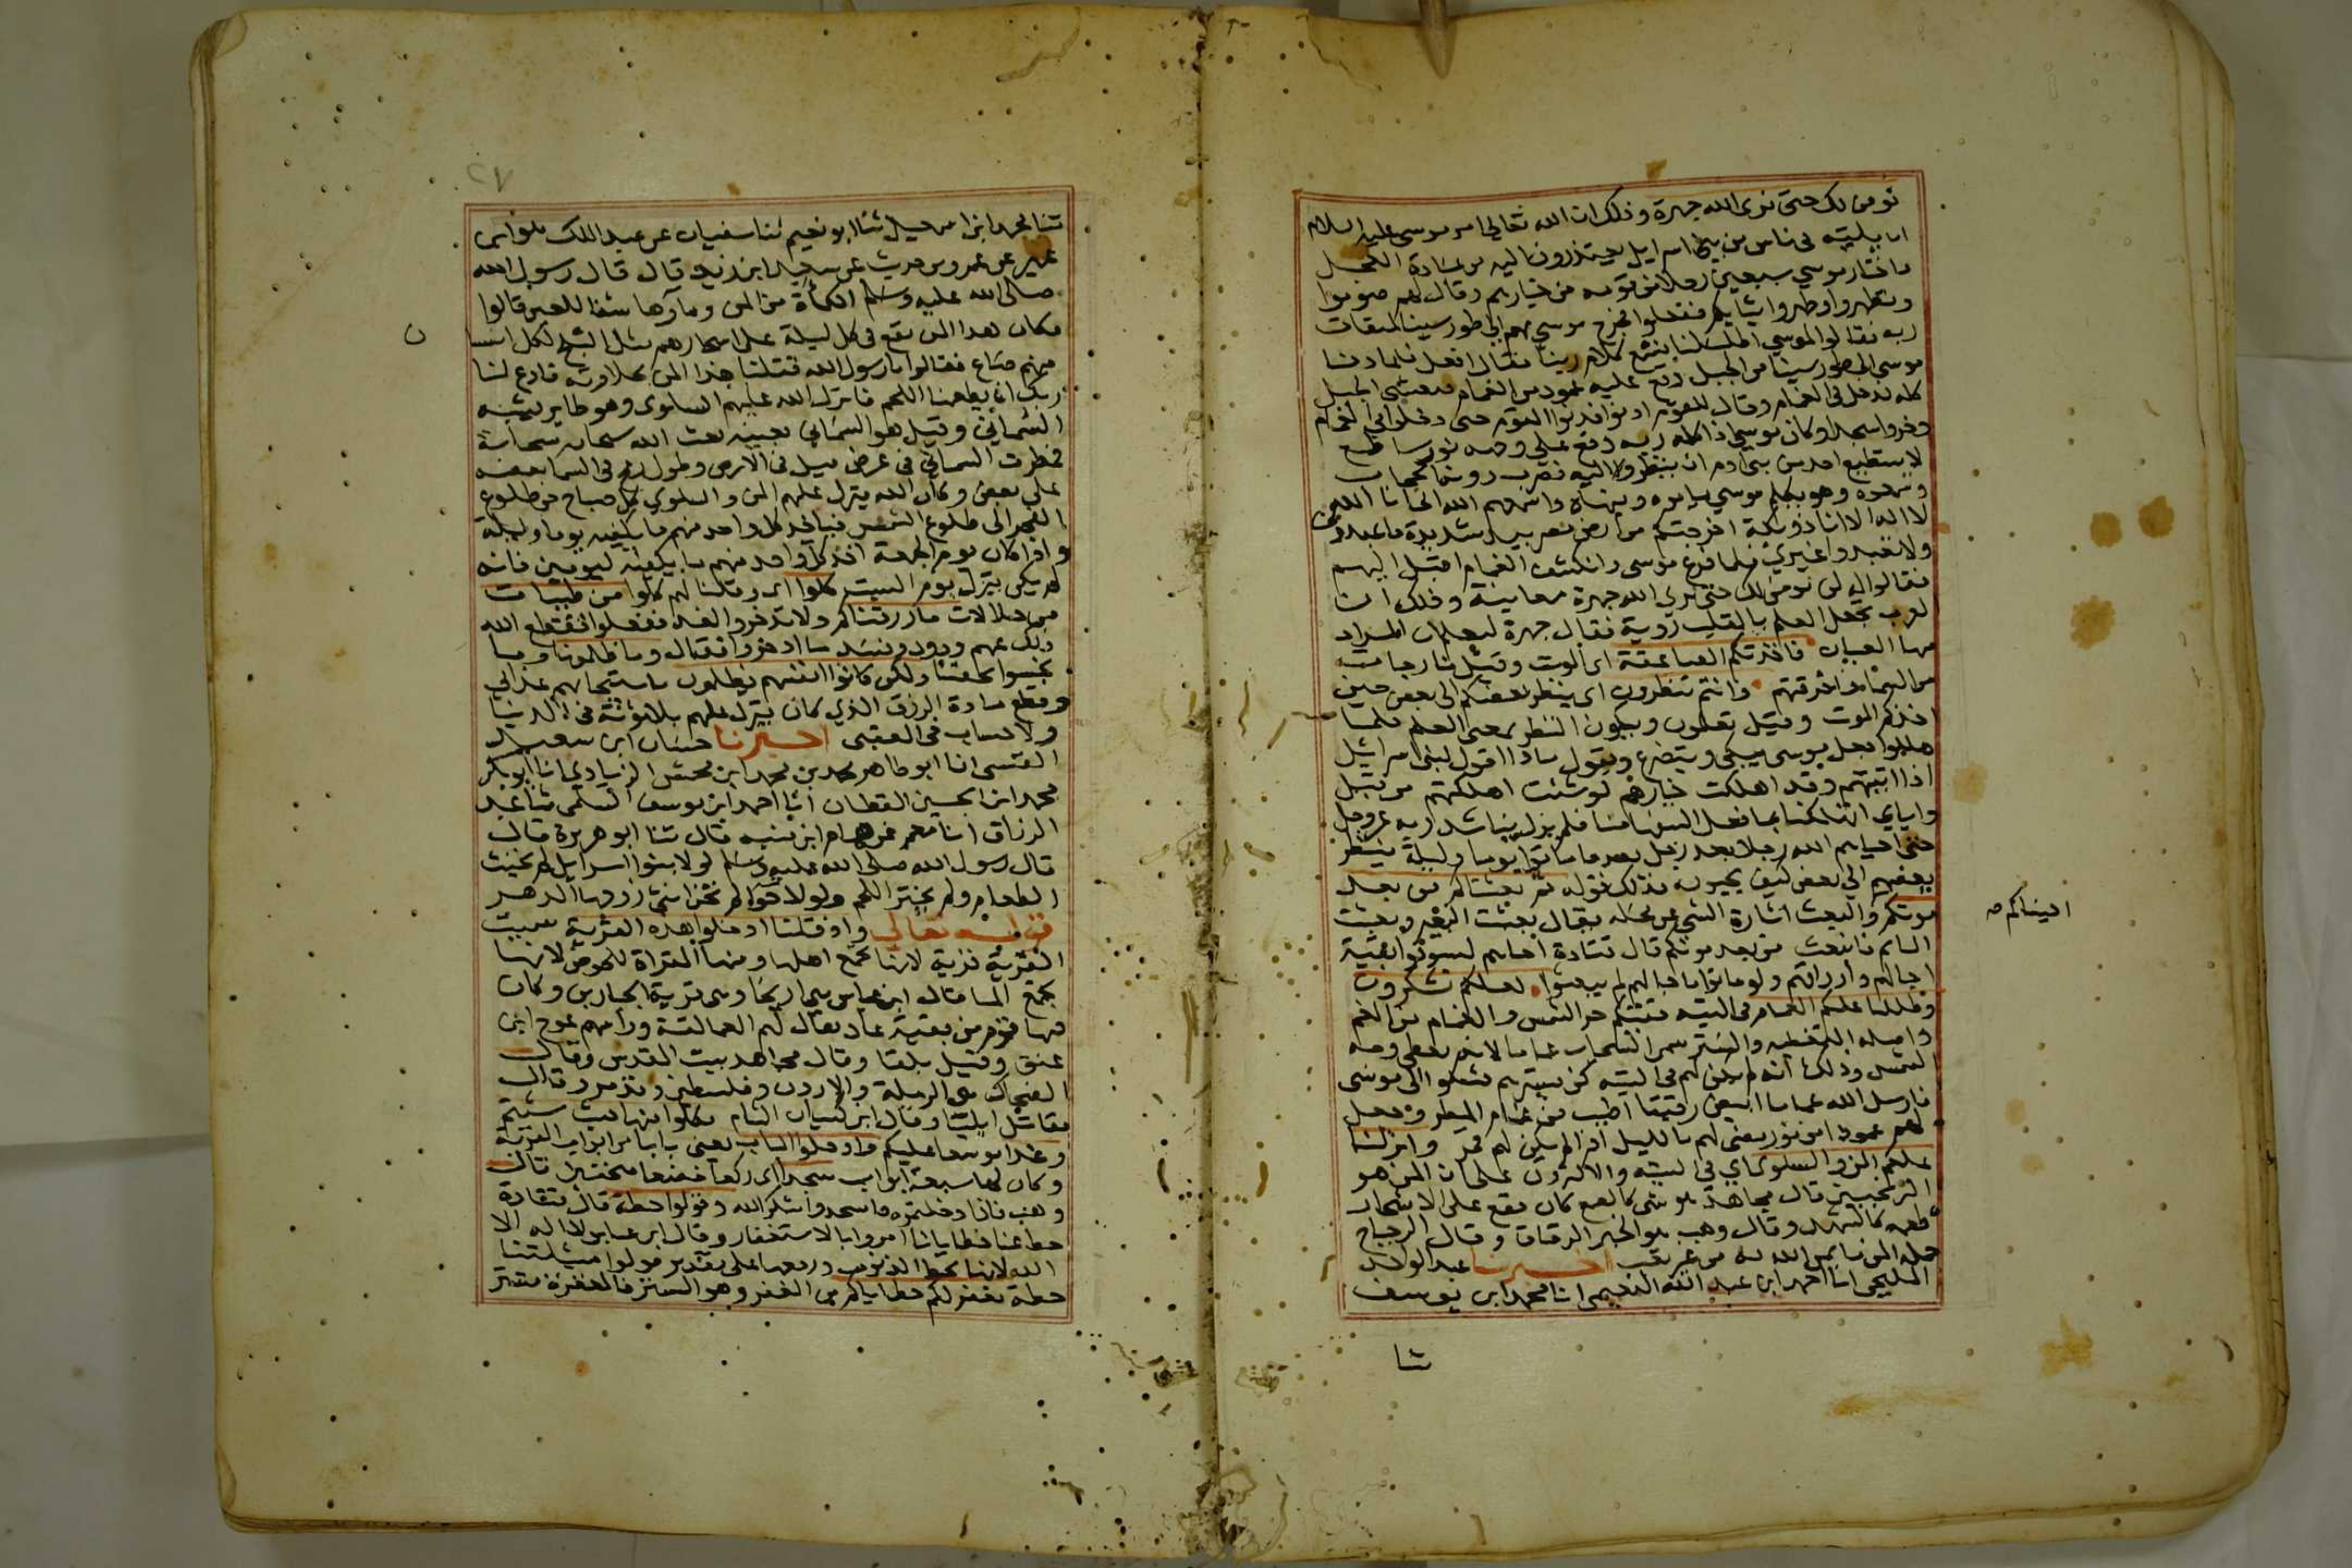 نومن لك حتى نرى الله جهرة وذلك ان الله تعالى امر موسى عليه السلام
ان ياتيه في ناس من بني اسرايل يعتذرون اليه من عبادة العجل
فاختار موسى سبعين رجلا من قومه من خيارهم وقال لهم صوموا
وتطهروا وطهروا ثيابكم ففعلوا فخرج موسى بهم الى طور سينا لميقات
ربه فقالوا لموسى اطلب لنا نسمع كلام ربنا فقال افعل فلما دنا
موسى الى طور سينا من الجبل وقع عليه عمود من الغمام فتغشى الجبل
كله فدخل في الغمام وقال للقوم ادنوا فدنوا القوم حتى دخلوا في الغمام
وخروا سجدا وكان موسى اذا كلمه ربه وقع على وجهه نور ساطع
لا يستطيع احد من بني ادم ان ينظر اليه فضرب دونهم الحجاب
وسمعوه وهو يكلم موسى يامره وينهاه واسمعهم الله اني انا الله
لا اله الا انا ذو بكة اخرجتكم من ارض مصر بيد شديدة فاعبدوني
ولا تعبدوا غيري فلما فرغ موسى وانكشف الغمام اقبل اليهم
فقالوا له لن نومن لك حتى نرى الله جهرة معاينة وذلك ان
العرب تجعل العلم بالقلب روية فقال جهرة ليعلم ان المراد
منها العيان فاخذتكم الصاعقة اى الموت وقيل نار جاءت
من السما فاحرقتهم وانتم تنظرون اى ينظر بعضكم الى بعض حين
اخذكم الموت وقيل تعلمون ويكون النظر بمعنى العلم فلما
هلكوا جعل موسى يبكي ويتضرع ويقول ماذا اقول لبني اسرائيل
اذا اتيتهم وقد اهلكت خيارهم لو شئت اهلكتهم من قبل
واياي اتهلكنا بما فعل السفها منا فلم يزل يناشد ربه عز وجل
حتى احياهم الله رجلا بعد رجل بعد ما ماتوا يوما وليلة ينظر
بعضهم الى بعض كيف يحيون فذلك قوله ثم بعثناكم من بعد
احييناكم صح
موتكم والبعث اثارة الشي عن محله يقال بعثت البعير وبعثت
النايم فانبعث من بعد موتكم قال قتادة احياهم ليستوفوا بقية
اجالهم وارزاقهم ولو ماتوا باجالهم لم يبعثوا لعلكم تشكرون
وظللنا عليكم الغمام في التيه تقيكم حر الشمس والغمام من الغم
واصله التغطية والستر سمى السحاب غماما لانه يغطي وجه
الشمس وذلك انه لم يكن لهم في التيه كن يسترهم فشكوا الى موسى
فارسل الله غماما ابيض رقيقا اطيب من غمام المطر وجعل
لهم عمودا من نور يضي لهم بالليل اذا لم يكن لهم قمر وانزلنا
عليكم المن والسلوى اي في التيه والاكثرون على ان المن هو
الترنجبين قال مجاهد هو شي كالصمغ كان يقع على الاشجار
طعمه كالشهد وقال وهب هو الخبز الرقاق وقال الزجاج
جملة المن ما يمن الله به من غير تعب اخبرنا عبد الواحد
المليحي انا احمد ابن عبد الله النعيمي انا محمد ابن يوسف
ثنا
٢٧
ثنا محمد ابن اسمعيل ثنا ابو نعيم ثنا سفيان عن عبد الملك هو ابن
عمير عن عمرو بن حريث عن سعيد ابن زيد قال قال رسول الله
صلى الله عليه وسلم الكمأة من المن وماؤها شفا للعين قالوا
فكان هذا المن يقع في كل ليلة على اشجارهم مثل الثلج لكل انسان
منهم صاع فقالوا يا رسول الله قتلنا هذا المن بحلاوته فادع لنا
ربك ان يطعمنا اللحم فانزل الله عليهم السلوى وهو طاير يشبه
السماني وقيل هو السماني بعينه بعث الله سبحانه سحابة
فمطرت السماني في عرض ميل في الارض وطول رمح في السما بعضه
على بعض وكان الله ينزل عليهم المن والسلوى كل صباح من طلوع
الفجر الى طلوع الشمس فياخذ كل واحد منهم ما يكفيه يوما وليلة
واذا كان يوم الجمعة اخذ كل واحد منهم ما يكفيه ليومين فانه
لم يكن ينزل يوم السبت كلوا اى وقلنا لهم كلوا من طيبات
من حلالات ما رزقناكم ولا تدخروا لغد ففعلوا فقطع الله
ذلك عنهم ودود وفسد ما ادخروا فقال وما ظلمونا وما
بخسوا بحقنا ولكن كانوا انفسهم يظلمون باستيجابهم عذابي
وقطع مادة الرزق الذي كان ينزل عليهم بلا مؤنة في الدنيا
ولا حساب في العقبى اخبرنا حسان ابن سعيد
القيسى انا ابو طاهر محمد بن محمد ابن محمش الزيادي انا ابو بكر
محمد ابن الحسين القطان انا احمد ابن يوسف السلمي ثنا عبد
الرزاق انا معمر عن همام ابن منبه قال ثنا ابو هريرة قال
قال رسول الله صلى الله عليه وسلم لولا بنوا اسرايل لم يخبث
الطعام ولم يخنز اللحم ولولا حوا لم تخن انثى زوجها الدهر
قوله تعالى واذ قلنا ادخلوا هذه القرية سميت
القرية قرية لانها تجمع اهلها ومنه المقراة للحوض لانها
تجمع الما قال ابن عباس هي اريحا وهي قرية الجبارين وكان
فيها قوم من بقية عاد يقال لهم العمالقة وراسهم عوج ابن
عنق وقيل بلقا وقال مجاهد بيت المقدس وقال
الضحاك هي الرملة والاردن وفلسطين وتدمر وقال
مقاتل ايليا وقال ابن كيسان الشام فكلوا منها حيث شئتم
رغدا موسعا عليكم وادخلوا الباب يعني بابا من ابواب القرية
وكان لها سبعة ابواب سجدا اى ركعا خضعا منحنين قال
وهب فاذا دخلتموه فاسجدوا شكرا لله وقولوا حطة قال قتادة
حط عنا خطايانا امروا بالاستغفار وقال ابن عباس لا اله الا
الله لانها تحط الذنوب ورفعها على تقدير قولوا مسئلتنا
حطة نغفر لكم خطاياكم من الغفر وهو الستر فالمغفرة تستر